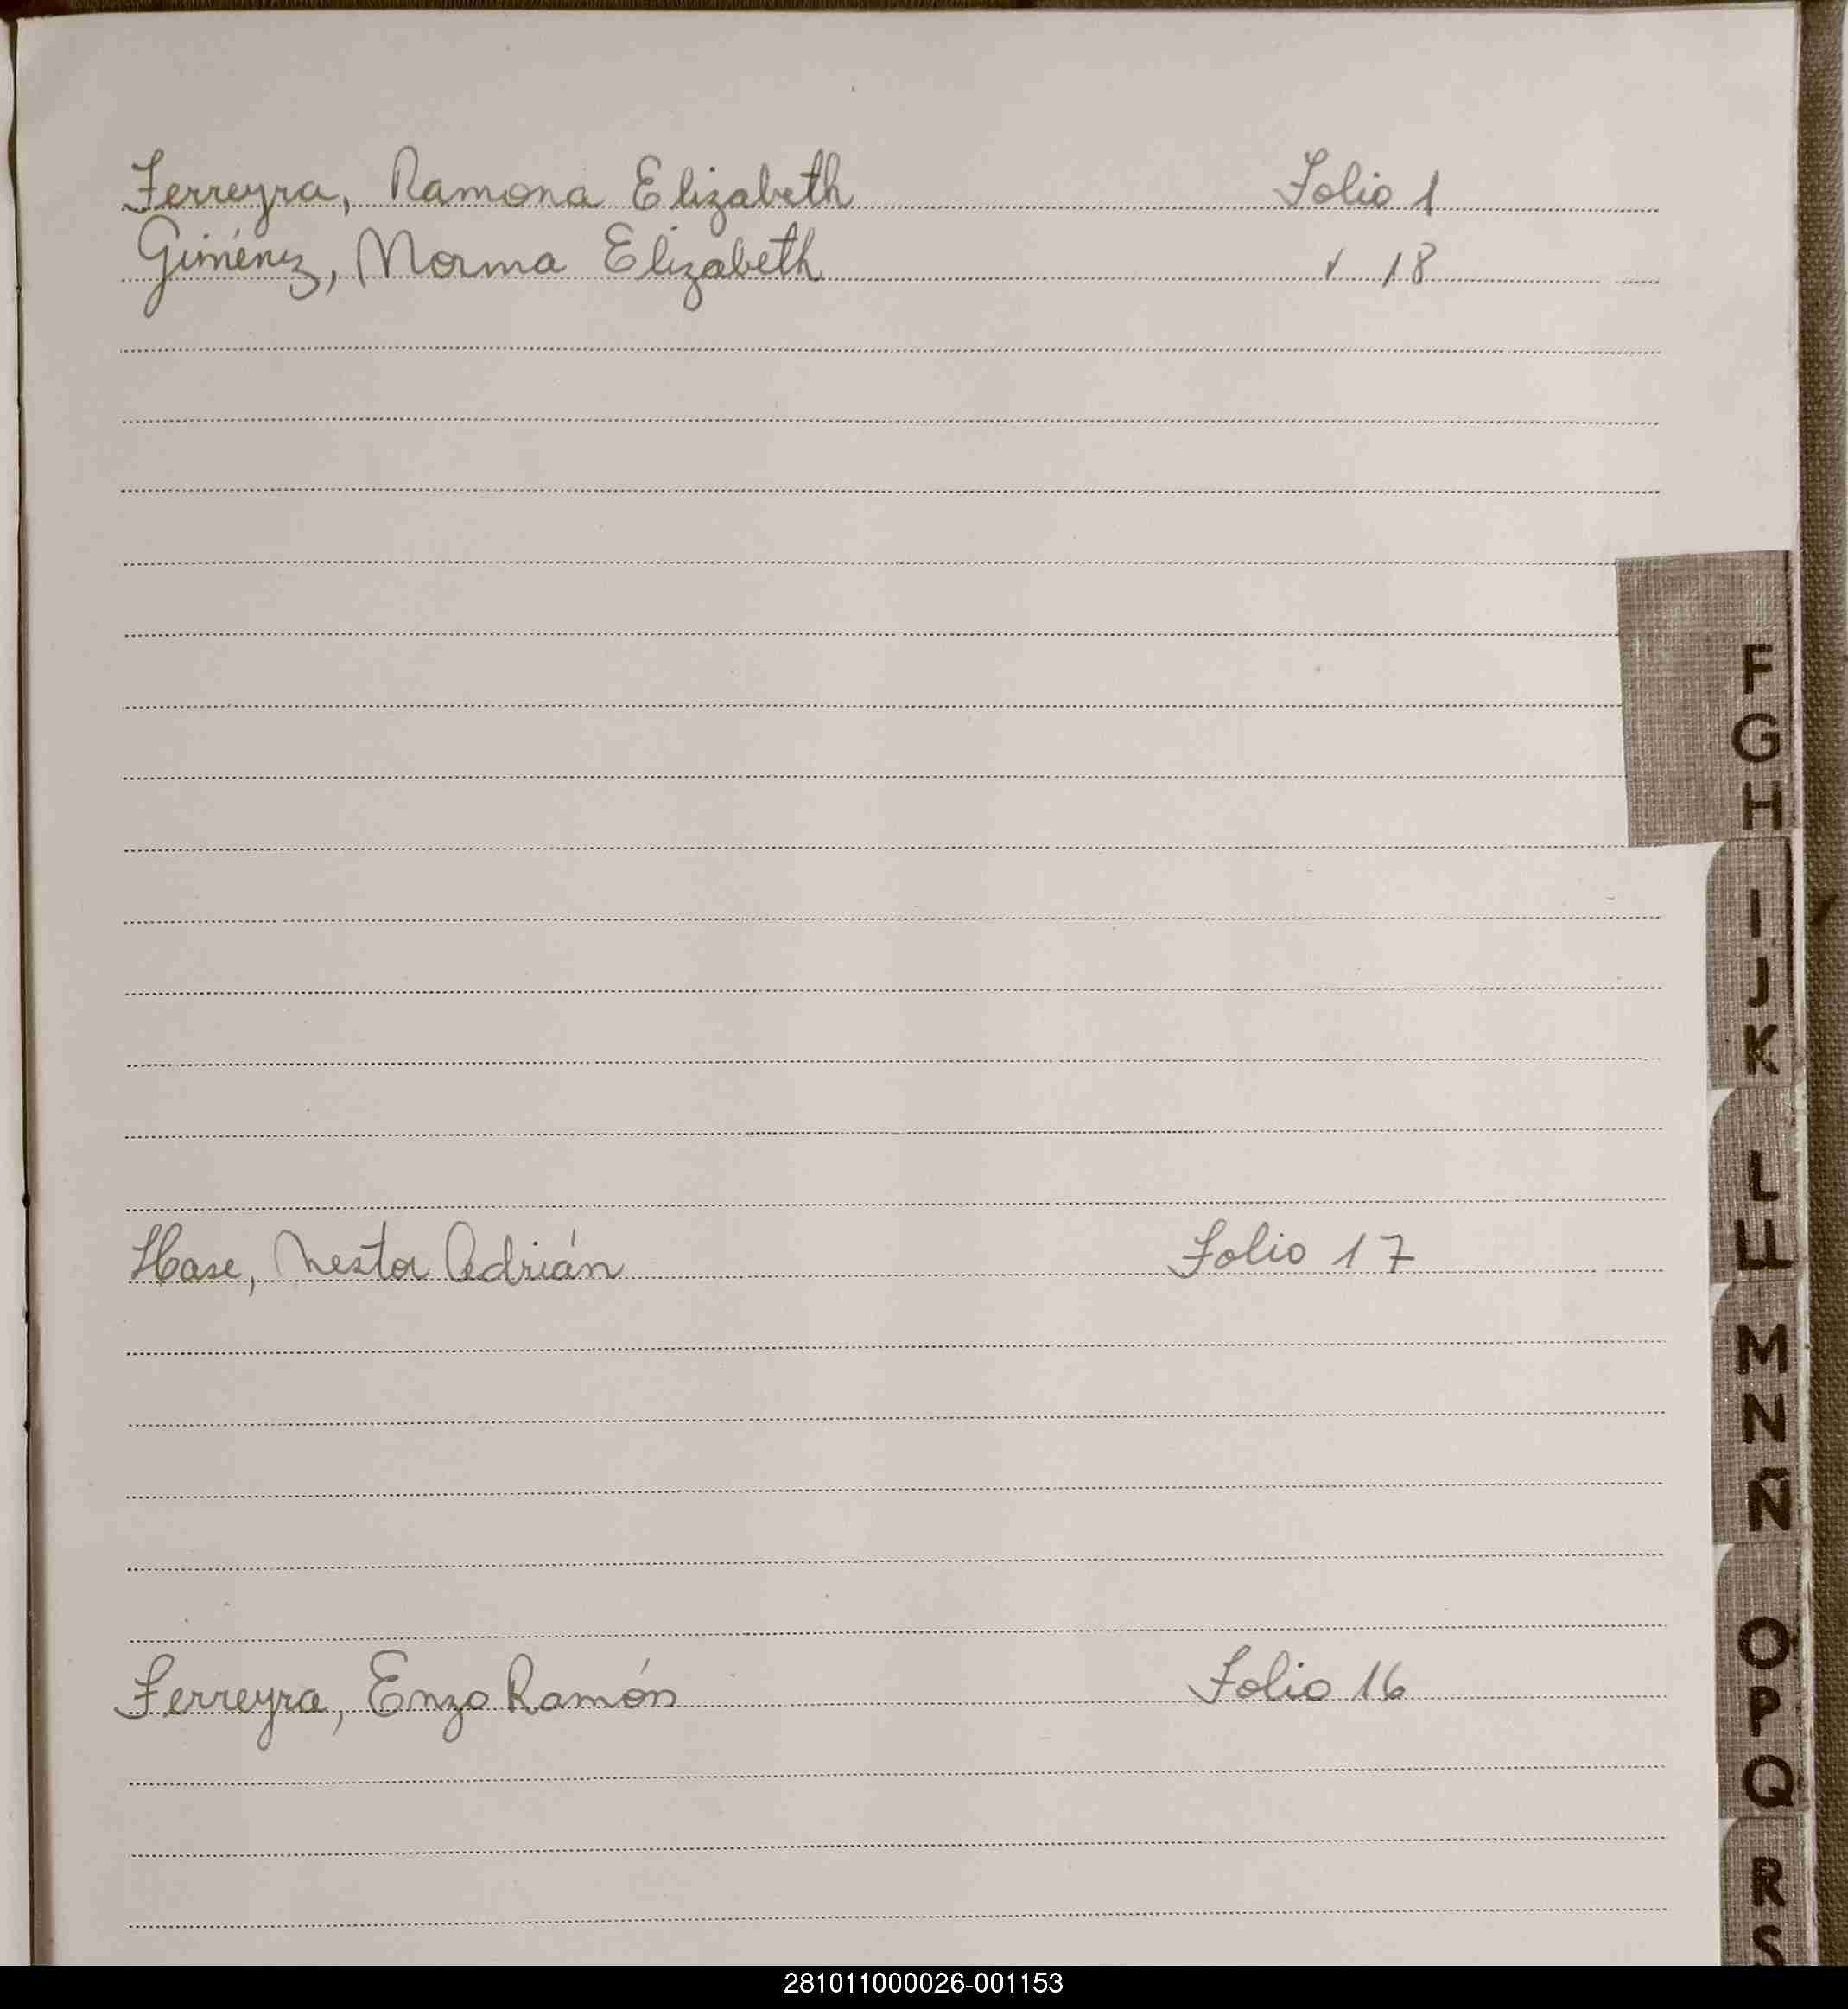 Ferreyra, Ramona Elizabeth Folio 1
Giménez, Norma Elizabeth " 18
F
G
H
I
J
K
L
LL
M
N
Ñ
Hase, Nestor Adrián Folio 17
O
P
Q
Ferreyra, Enzo Ramón Folio 16
R
S
281011000026-001153